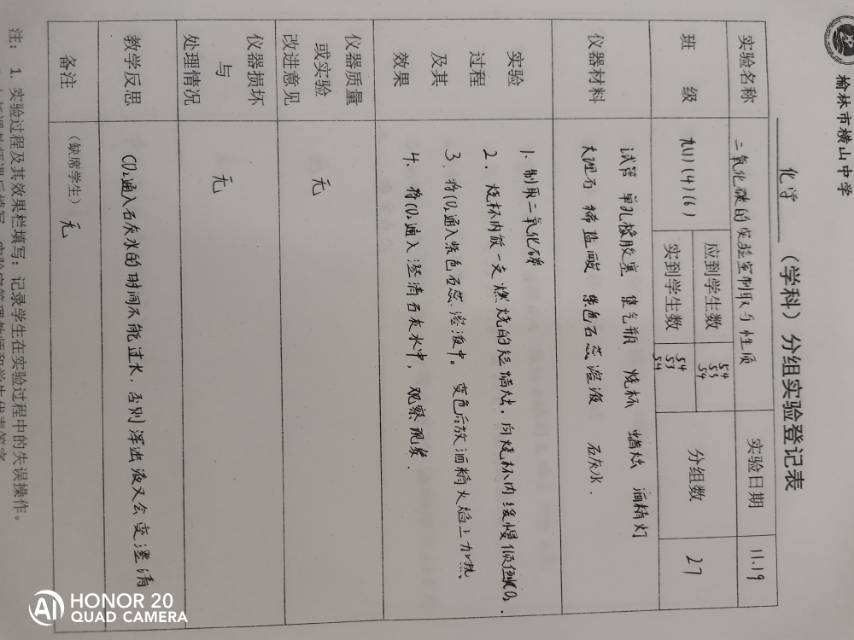 榆林市横山中学
化学 (学科) 分组实验登记表
实验名称 二氧化碳的实验室制取与性质 实验日期 11.19
班级 九(1)(4)(6) 应到学生数 54 53 54 分组数 27
实到学生数 54 53 54
仪器材料 试管 单孔橡胶塞 集气瓶 烧杯 蜡烛 酒精灯
大理石 稀盐酸 紫色石蕊溶液 石灰水.
实验过程及其效果
1. 制取二氧化碳
2. 烧杯内放一支燃烧的短蜡烛, 向烧杯内缓慢倾倒CO₂.
3. 将CO₂通入紫色石蕊溶液中。变色后放酒精火焰上加热.
4. 将CO₂通入澄清石灰水中, 观察现象.
仪器质量或实验改进意见 无
仪器损坏与处理情况 无
教学反思 CO₂通入石灰水的时间不能过长, 否则浑浊液又会变澄清
备注 (缺席学生) 无
注: 1. 实验过程及其效果栏填写: 记录学生在实验过程中的失误操作。
HONOR 20
QUAD CAMERA